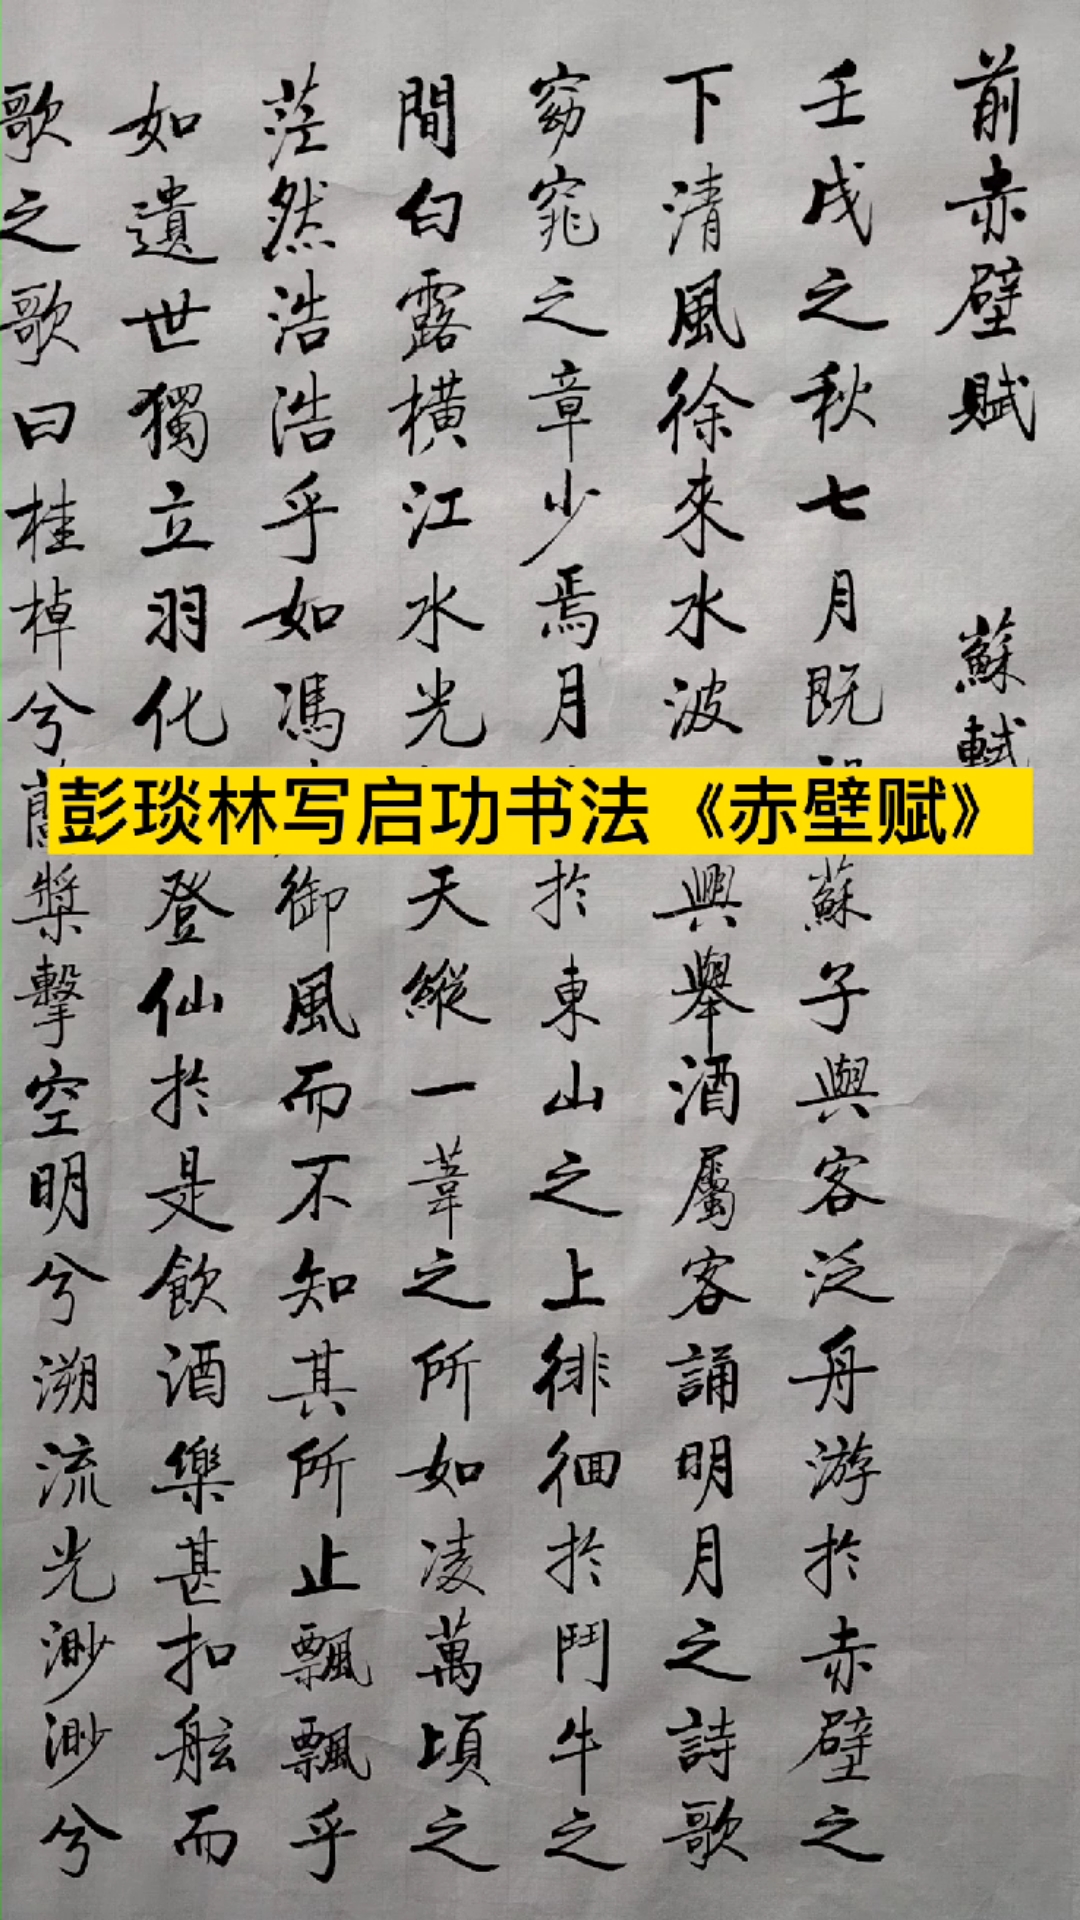 前赤壁賦 蘇軾
壬戌之秋七月既 蘇子與客泛舟游於赤壁之
下清風徐來水波 興舉酒屬客誦明月之詩歌
窈窕之章少焉月 於東山之上徘徊於鬥牛之
間白露橫江水光 天縱一葦之所如凌萬頃之
茫然浩浩乎如馮 御風而不知其所止飄飄乎
如遺世獨立羽化 登仙於是飲酒樂甚扣舷而
歌之歌曰桂棹兮 槳擊空明兮溯流光渺渺兮
彭琰林写启功书法《赤壁赋》